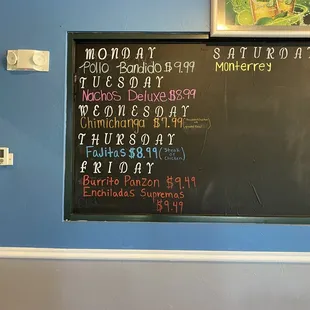 MONDAY
Pollo Bandido $9.99
TUESDAY
Nachos Deluxe $8.99
WEDNESDAY
Chimichanga $7.99
THURSDAY
Fajitas $8.99 (Steak or Chicken)
FRIDAY
Burrito Panzon $9.49
Enchiladas Supremas
$9.49
SATURDAY
Monterrey